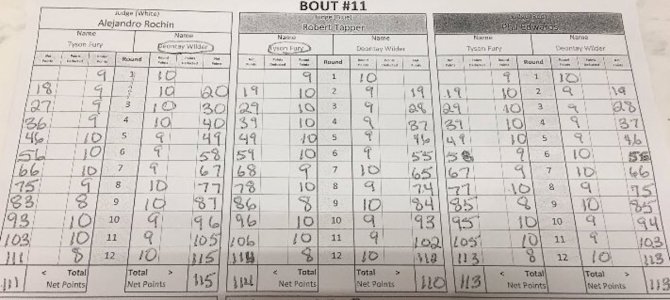 BOUT #11
Judge (White)
Alejandro Rochin Robert Tapper Phil Edwards
Name Name Name Name Name Name
Tyson Fury Deontay Wilder Tyson Fury Deontay Wilder Tyson Fury Deontay Wilder
Net Points Points Deducted Points Round Points Points Deducted Net Points Net Points Points Deducted Points Round Points Points Deducted Net Points Net Points Points Deducted Points Round Points Points Deducted Net Points
9 1 10 9 1 10 9 1 10
18 9 2 10 20 19 10 2 9 19 19 10 2 9 19
27 9 3 10 30 29 10 3 9 28 29 10 3 9 28
36 9 4 10 40 39 10 4 9 37 39 10 4 9 37
46 10 5 9 49 49 10 5 9 46 49 10 5 9 46
56 10 6 9 58 59 10 6 9 55 58 9 6 10
66 10 7 9 67 68 9 7 10 65 67 9 7 10 66
75 9 8 10 77 78 10 8 9 74 77 10 8 9 75
83 8 9 10 87 86 8 9 10 84 85 8 9 10 85
93 10 10 9 96 96 10 10 9 93 95 10 10 9 94
103 10 11 9 105 106 10 11 9 102 105 10 11 9 103
111 8 12 10 115 114 8 12 10 112 113 8 12 10 113
111 < Total Net Points Total > Net Points 115 114 < Total Net Points Total > Net Points 110 113 < Total Net Points Total > Net Points 113